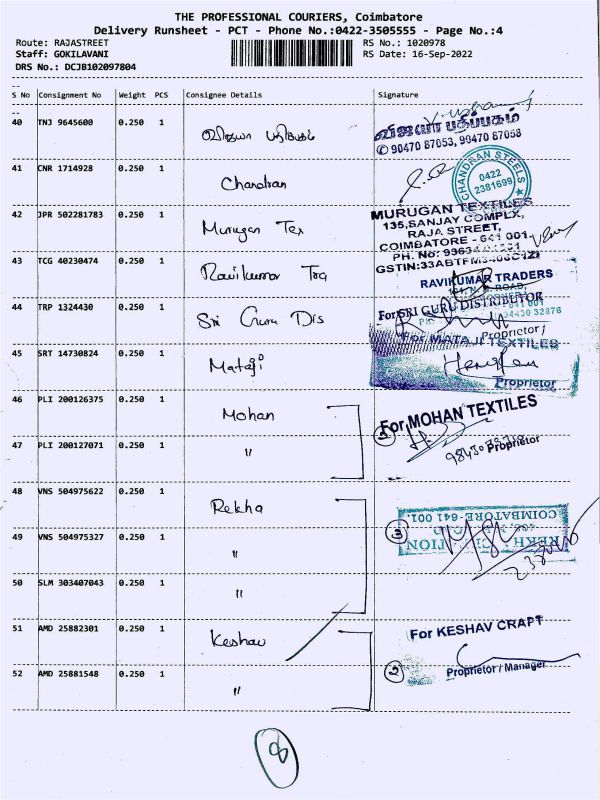 THE PROFESSIONAL COURIERS, Coimbatore
Delivery Runsheet - PCT - Phone No.:0422-3505555 - Page No.:4
Route: RAJASTREET RS No.: 1020978
Staff: GOKILAVANI RS Date: 16-Sep-2022
DRS No.: DCJB102097804
S No Consignment No Weight PCS Consignee Details Signature
40 TNJ 9645600 0.250 1 விஜயா பதிப்பகம்
விஜயா பதிப்பகம்
✆ 90470 87053, 90470 87058
41 CNR 1714928 0.250 1 Chandran
CHANDRAN STEELS
0422
2381699
42 JPR 502281783 0.250 1 Murugan Tex
MURUGAN TEXTILES
135, SANJAY COMPLX,
RAJA STREET,
COIMBATORE - 641 001.
PH. No: 93634
GSTIN:33ABTFM3406C1ZI
43 TCG 40230474 0.250 1 Ravikumar Tra
RAVIKUMAR TRADERS
ROAD,
44 TRP 1324430 0.250 1 Sri Guru Dis
For SRI GURU DISTRIBUTOR
641 001
32878
Proprietor
45 SRT 14730824 0.250 1 Mataji
For MATAJI TEXTILES
Proprietor
46 PLI 200126375 0.250 1 Mohan
For MOHAN TEXTILES
Proprietor
47 PLI 200127071 0.250 1 "
48 VNS 504975622 0.250 1 Rekha
COIMBATORE-641 001.
REKH
3
49 VNS 504975327 0.250 1 "
50 SLM 303407043 0.250 1 "
51 AMD 25882301 0.250 1 Keshav
For KESHAV CRAFT
Proprietor / Manager
52 AMD 25881548 0.250 1 "
2
8